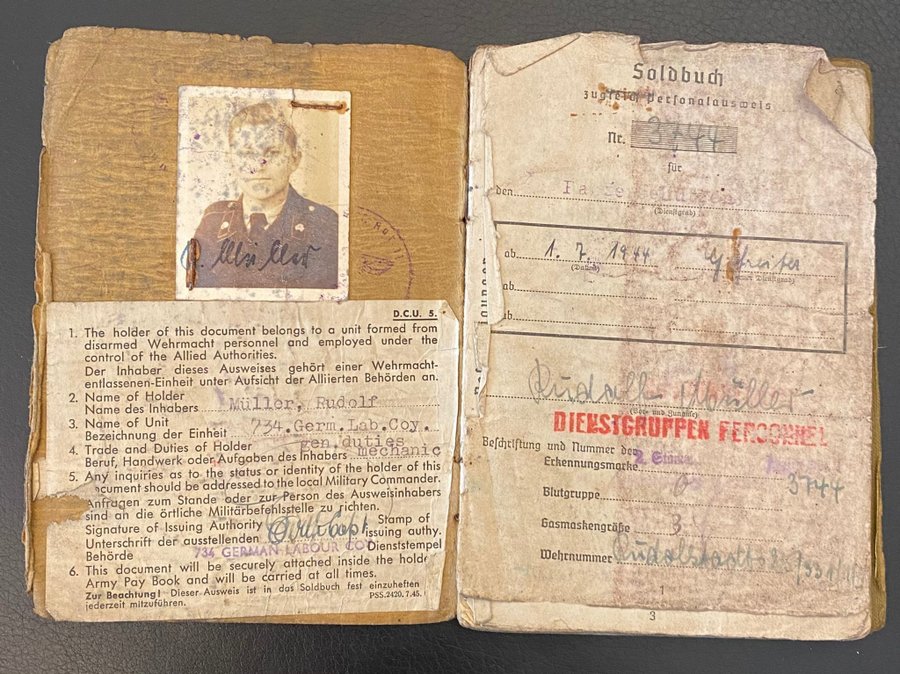 R. Müller
D.C.U. 5.
1. The holder of this document belongs to a unit formed from
disarmed Wehrmacht personnel and employed under the
control of the Allied Authorities.
Der Inhaber dieses Ausweises gehört einer Wehrmacht-
entlassenen-Einheit unter Aufsicht der Alliierten Behörden an.
2. Name of Holder
Name des Inhabers Müller, Rudolf
3. Name of Unit
Bezeichnung der Einheit 734.Germ.Lab.Coy.
4. Trade and Duties of Holder gen.duties
Beruf, Handwerk oder Aufgaben des Inhabers mechanic
5. Any inquiries as to the status or identity of the holder of this
document should be addressed to the local Military Commander.
Anfragen zum Stande oder zur Person des Ausweisinhabers
sind an die örtliche Militärbefehlsstelle zu richten.
Signature of Issuing Authority Stamp of
Unterschrift der ausstellenden issuing authy.
Behörde 734 GERMAN LABOUR COY Dienststempel
6. This document will be securely attached inside the holder
Army Pay Book and will be carried at all times.
Zur Beachtung! Dieser Ausweis ist in das Soldbuch fest einzuheften
jederzeit mitzuführen. PSS.2420.7.45.
Soldbuch
zugleich Personalausweis
Nr. 3744
für
den
(Dienstgrad)
ab 1. 7. 1944 Gefreiter
(Datum) (Dienstgrad)
ab
ab
Rudolf Müller
(Vor- und Zuname)
DIENSTGRUPPEN PERSONNEL
Beschriftung und Nummer der
Erkennungsmarke 3744
Blutgruppe 0
Gasmaskengröße 3
Wehrnummer Rudolstadt
1
3